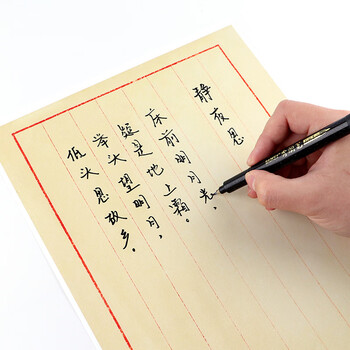 静夜思
床前明月光、
疑是地上霜。
举头望明月,
低头思故乡。